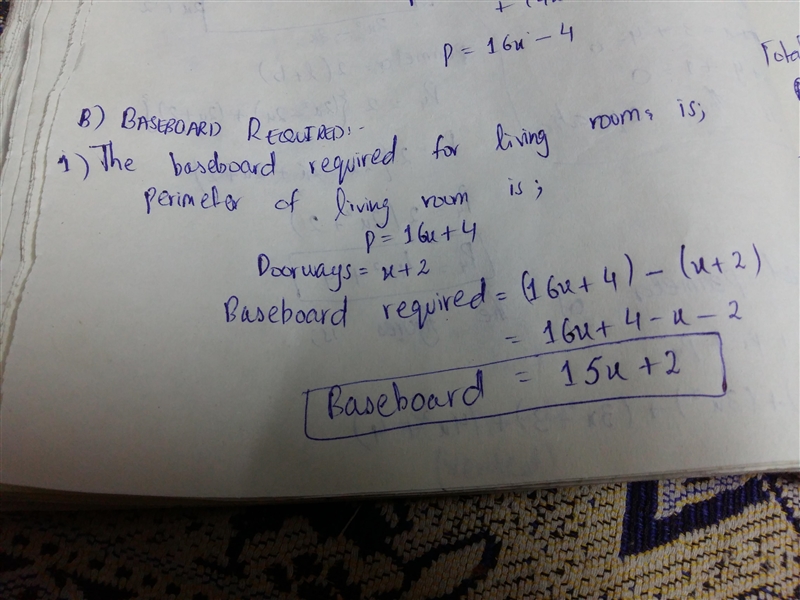 P = 16x - 4
Total
B) BASEBOARD REQUIRED:-
1) The baseboard required for living room is;
perimeter of living room is;
P = 16x + 4
Doorways = x + 2
Baseboard required = (16x + 4) - (x + 2)
= 16x + 4 - x - 2
Baseboard = 15x + 2